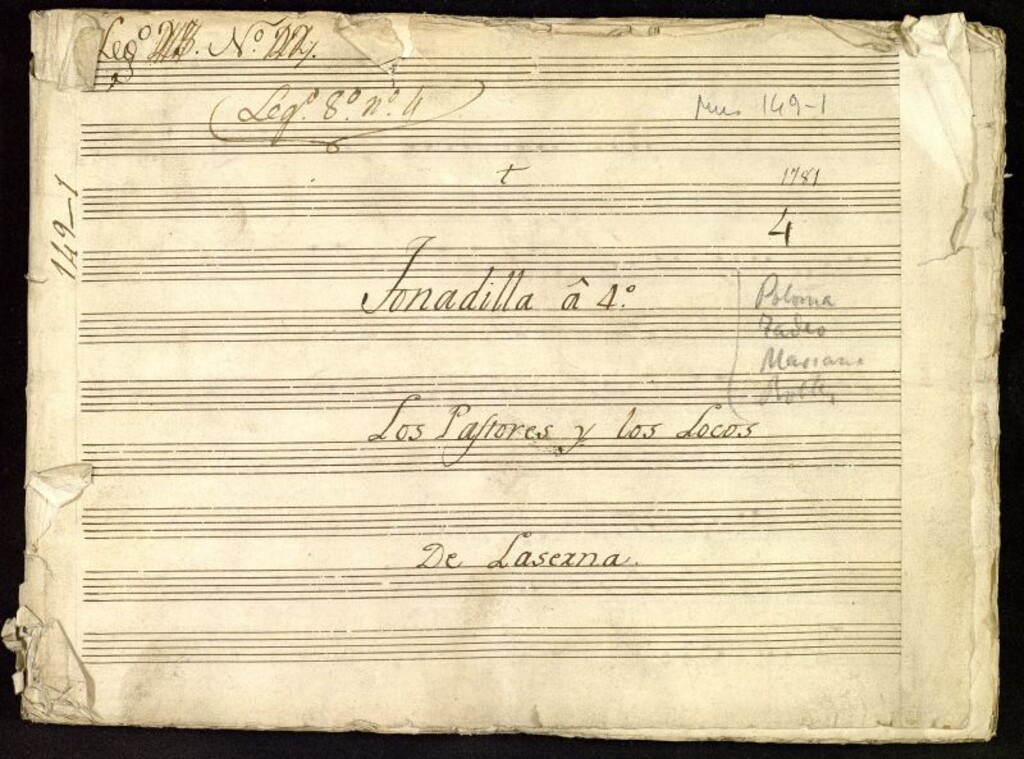 Leg.º N.º
Leg.º 8.º n.º 4
Mus 149-1
149-1
t
1781
4
Tonadilla â 4.º
Polonia
Tadeo
Mariano
Los Pastores y los Locos
De Laserna.